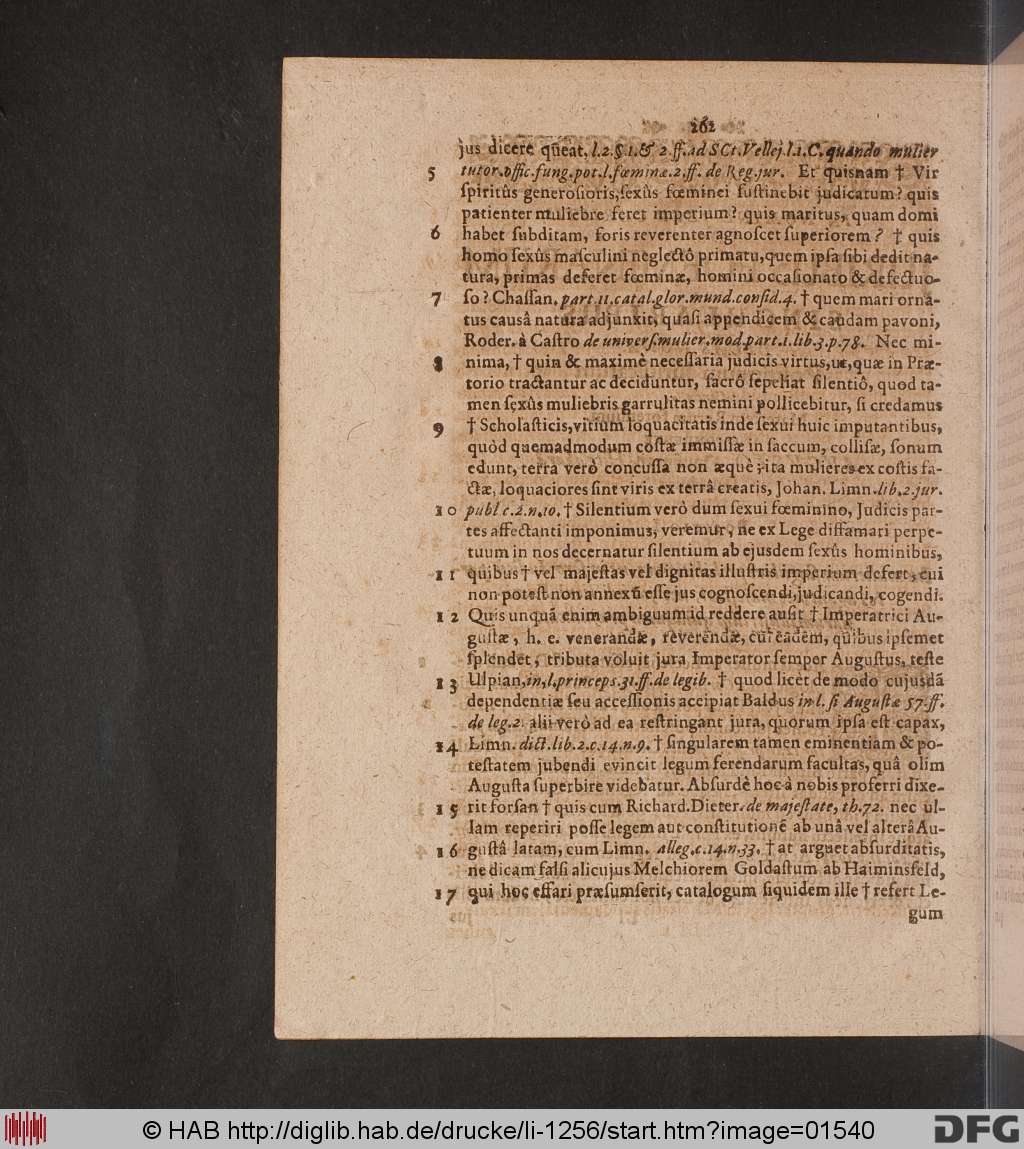 262
jus dicere qũeat, l.2.§ 1.& 2.ff.ad SCt.Vellej.l.1.C. quando mulier
5 tutor.offic.fung.pot.l.fœminæ.2.ff. de Reg.jur. Et quisnam † Vir
ſpiritûs generoſioris,ſexûs fœminei ſuſtinebit judicatum? quis
patienter muliebre feret imperium? quis maritus, quam domi
6 habet ſubditam, foris reverenter agnoſcet ſuperiorem? † quis
homo ſexûs maſculini neglectô primatu,quem ipſa ſibi dedit na-
tura, primas deferet fœminæ, homini occaſionato & defectuo-
7 ſo? Chaſſan. part.11.catal.glor.mund.conſid.4. † quem mari orna-
tus causâ natura adjunxit, quaſi appendicem & caudam pavoni,
Roder. à Caſtro de univerſ.mulier.mod.part.1.lib.3.p.78. Nec mi-
8 nima, † quin & maximè neceſſaria judicis virtus,ut,quæ in Præ-
torio tractantur ac deciduntur, ſacrô ſepeliat ſilentiô, quod ta-
men ſexûs muliebris garrulitas nemini pollicebitur, ſi credamus
9 † Scholaſticis,vitium loquacitatis inde ſexui huic imputantibus,
quòd quemadmodum coſtæ immiſſæ in ſaccum, colliſæ, ſonum
edunt, terra verò concuſſa non æquè; ita mulieres ex coſtis fa-
ctæ, loquaciores ſint viris ex terrâ creatis, Johan. Limn.lib.2.jur.
10 publ c.2.n.10. † Silentium verò dum ſexui fœminino, Judicis par-
tes affectanti imponimus, veremur, ne ex Lege diffamari perpe-
tuum in nos decernatur ſilentium ab ejusdem ſexûs hominibus,
11 quibus † vel majeſtas vel dignitas illuſtris imperium defert, cui
non poteſt non annexũ eſſe jus cognoſcendi,judicandi, cogendi.
12 Quis unquã enim ambiguum id reddere auſit † Imperatrici Au-
guſtæ, h. e. venerandæ, reverendæ, cui eadem, quibus ipſemet
ſplendet, tributa voluit jura Imperator ſemper Auguſtus, teſte
13 Ulpian,in,l.princeps.31.ff.de legib. † quod licèt de modo cujusdã
dependentiæ ſeu acceſſionis accipiat Baldus in l. ſi Auguſtæ 57.ff.
de leg.2. alii verò ad ea reſtringant jura, quorum ipſa eſt capax,
14 Limn. dict.lib.2.c.14.n.9. † ſingularem tamen eminentiam & po-
teſtatem jubendi evincit legum ferendarum facultas, quâ olim
Auguſta ſuperbire videbatur. Abſurdè hoc à nobis proferri dixe-
15 rit forſan † quis cum Richard.Dieter. de majeſtate, th.72. nec ul-
lam reperiri poſſe legem aut conſtitutionẽ ab unâ vel alterâ Au-
16 guſtâ latam, cum Limn. alleg.c.14.n.33. † at arguet abſurditatis,
ne dicam falſi alicujus Melchiorem Goldaſtum ab Haiminsfeld,
17 qui hoc effari præſumſerit, catalogum ſiquidem ille † refert Le-
gum
© HAB http://diglib.hab.de/drucke/li-1256/start.htm?image=01540
DFG